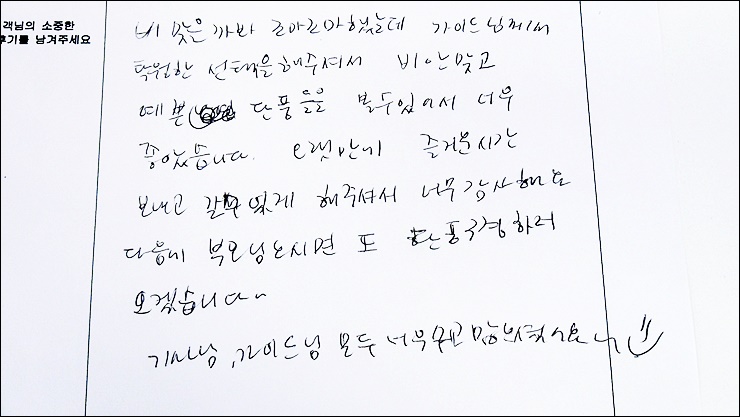 객님의 소중한
후기를 남겨주세요
비 맞을까봐 조마조마했는데 가이드님께서
탁월한 선택을해주셔서 비안맞고
예쁜 단풍을을 볼수있어서 너무
좋았습니다. 오랫만에 즐거운시간
보내고 갈수 있게 해주셔서 너무감사해요
다음에 부모님오시면 또 단풍구경하러
오겠습니다~
기사님, 가이드님 모두 너무 수고 많으셨어요~ :)